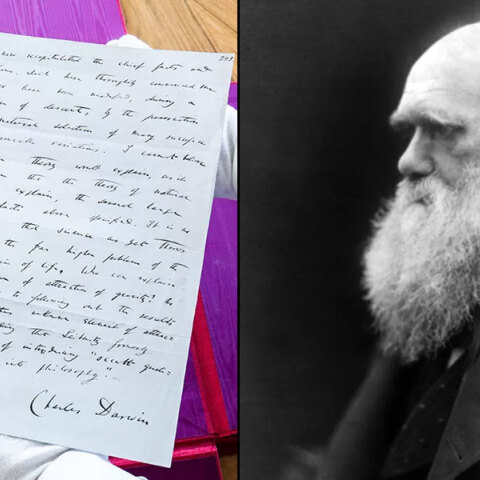 now recapitulated the chief facts and
which have thoroughly convinced me
have been modified, during a
of descent, by the preservation
natural selection of many successive
variations. I cannot believe
theory would explain, as it
that the theory of natural
explain, the several large
facts above specified. It is no
that science as yet throws
the far higher problem of the
of life. Who can explain
of attraction of gravity? No
to following out the results
unknown element of attrac
that Leibnitz formerly
of introducing "occult quali-
into philosophy".—
Charles Darwin